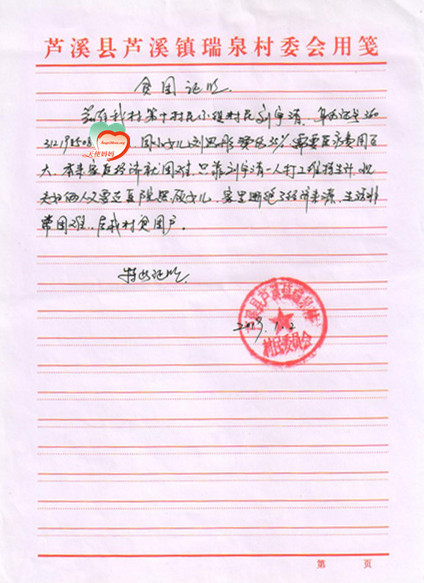 芦溪县芦溪镇瑞泉村委会用笺
贫困证明
兹有我村第十村民小组村民刘军清,身份证
3121985
因小女儿刘思彤烧伤35%需要医疗费用巨
大,本来家庭经济就困难,只靠刘军清一人打工维持生计,现
夫妇俩人又要在医院照顾女儿,家里断绝了经济来源,生活非
常困难,属我村贫困户。
特此证明
天使妈妈
芦溪县芦溪镇瑞泉村
村民委员会
第 页